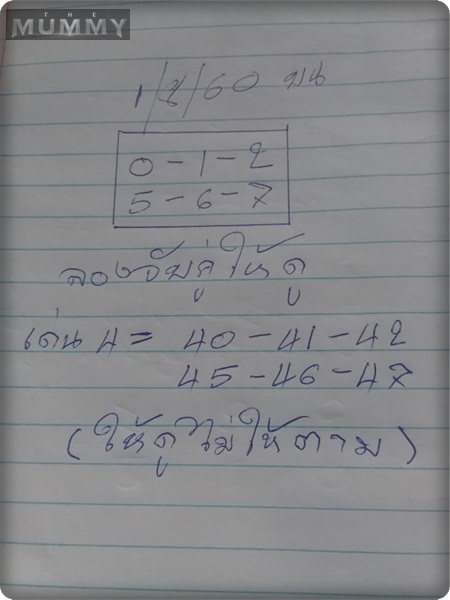 THE
MUMMY
1/2/60 บน
0-1-2
5-6-7
ลองจับคู่ให้ดู
เด่น 4 = 40-41-42
45-46-47
(ให้ดูไม่ให้ตาม)